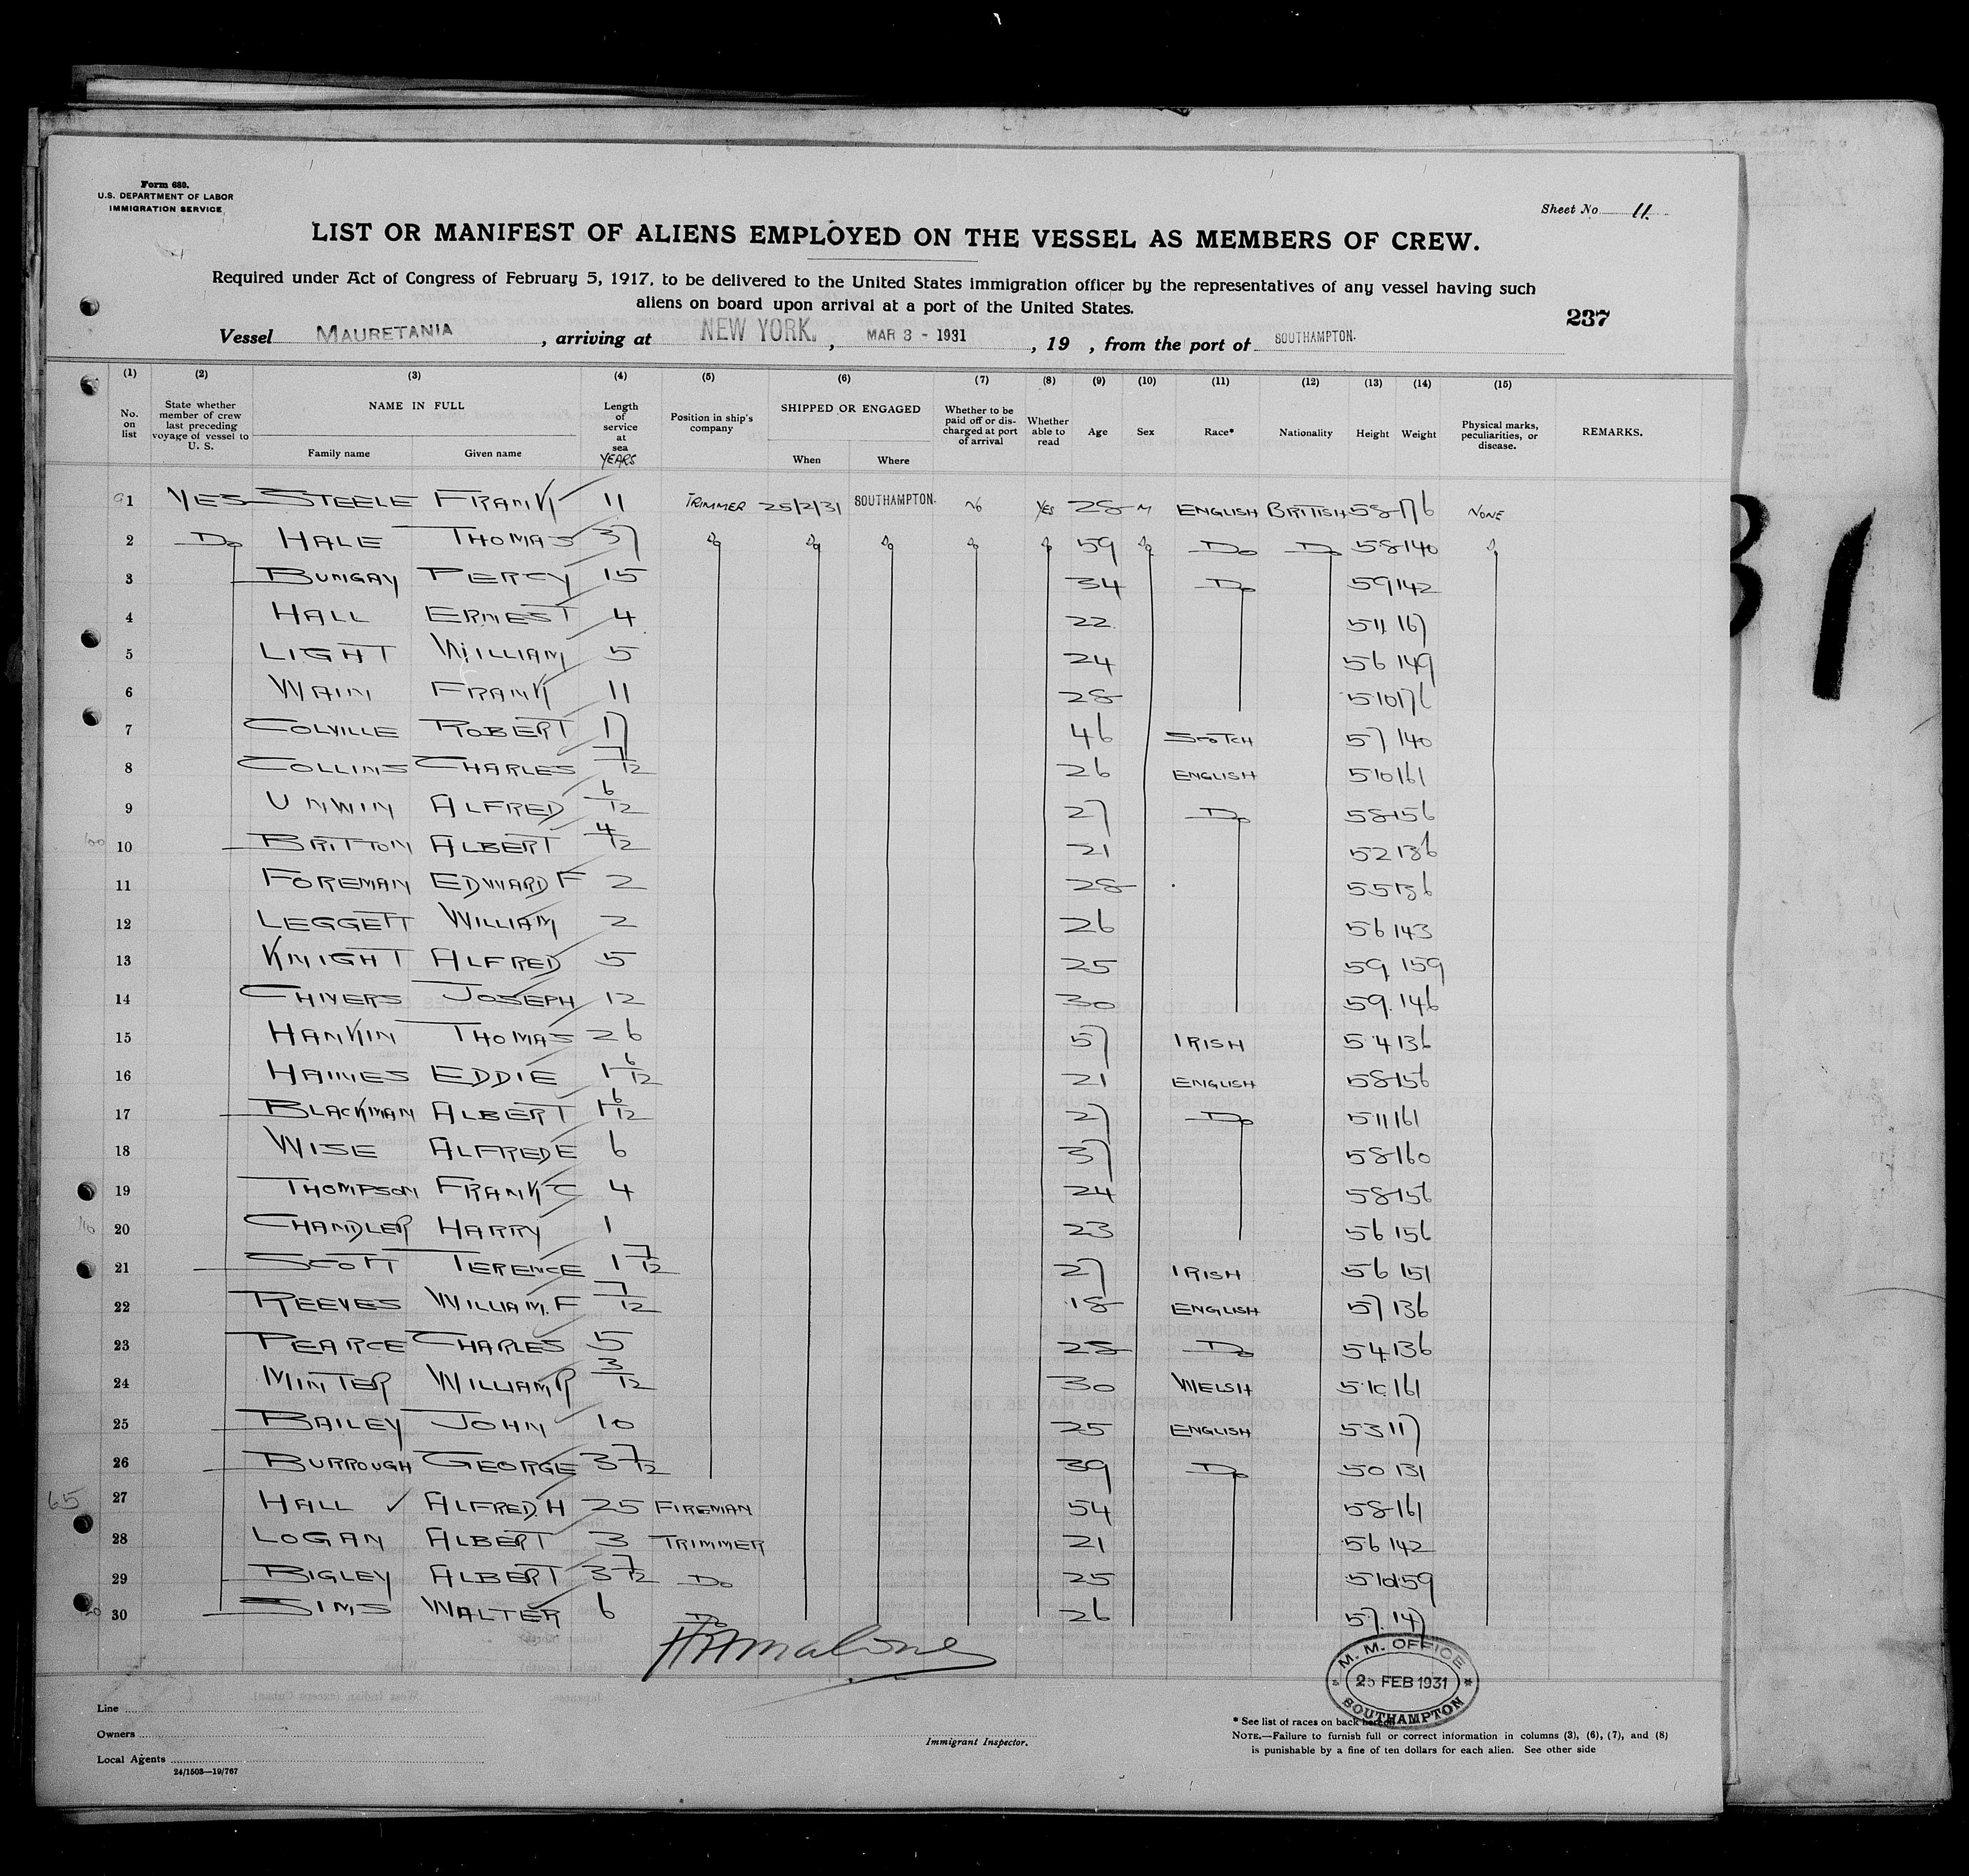 Form 680.
U.S. DEPARTMENT OF LABOR
IMMIGRATION SERVICE
Sheet No 11.
LIST OR MANIFEST OF ALIENS EMPLOYED ON THE VESSEL AS MEMBERS OF CREW.
Required under Act of Congress of February 5, 1917, to be delivered to the United States immigration officer by the representatives of any vessel having such
aliens on board upon arrival at a port of the United States.
237
Vessel MAURETANIA, arriving at NEW YORK., MAR 3 - 1931, 19 , from the port of SOUTHAMPTON.
(1) (2) (3) (4) (5) (6) (7) (8) (9) (10) (11) (12) (13) (14) (15)
No. on list State whether member of crew last preceding voyage of vessel to U. S. NAME IN FULL Family name Given name Length of service at sea YEARS Position in ship's company SHIPPED OR ENGAGED When Where Whether to be paid off or discharged at port of arrival Whether able to read Age Sex Race* Nationality Height Weight Physical marks, peculiarities, or disease. REMARKS.
1 YES STEELE FRANK 11 TRIMMER 25/2/31 SOUTHAMPTON. NO YES 28 M ENGLISH BRITISH 58 176 NONE
2 Do HALE THOMAS 37 59 Do Do 58 140
3 BUNGAY PERCY 15 34 Do 59 142
4 HALL ERNEST 4 22 511 167
5 LIGHT WILLIAM 5 24 56 149
6 WAIN FRANK 11 28 510 176
7 COLVILLE ROBERT 17 46 SCOTCH 57 140
8 COLLINS CHARLES 7/12 26 ENGLISH 510 161
9 UNWIN ALFRED 6/12 27 Do 58 156
10 BRITTON ALBERT 4/12 21 52 136
11 FOREMAN EDWARD F 2 28 55 136
12 LEGGETT WILLIAM 2 26 56 143
13 KNIGHT ALFRED 5 25 59 159
14 CHIVERS JOSEPH 12 30 59. 146
15 HANKIN THOMAS 26 57 IRISH 54 136
16 HAINES EDDIE 1 6/12 21 ENGLISH 58 156
17 BLACKMAN ALBERT 1 6/12 27 Do 511 161
18 WISE ALFRED E 6 37 58 160
19 THOMPSON FRANK C 4 24 58 156
20 CHANDLER HARRY 1 23 56 156
21 SCOTT TERENCE 1 7/12 27 IRISH 56 151
22 REEVES WILLIAM. F 7/12 18 ENGLISH 57 136
23 PEARCE CHARLES 5 28 Do 54. 136
24 MINTER WILLIAM R 3/12 30 WELSH 510 161
25 BAILEY JOHN 10 25 ENGLISH 53 117
26 BURROUGH GEORGE 3 7/12 39 Do 50 131
65 27 HALL ✓ ALFRED. H 25 FIREMAN 54 58 161
28 LOGAN ALBERT 3 TRIMMER 21 56 142
29 BIGLEY ALBERT 3 7/12 Do 25 510 159
30 SIMS WALTER 6 Do 26 57. 147
Malone
M. M. OFFICE
25 FEB 1931
SOUTHAMPTON
Line
Owners
Local Agents
24/1503—19/767
Immigrant Inspector.
* See list of races on back hereof
NOTE.—Failure to furnish full or correct information in columns (3), (6), (7), and (8)
is punishable by a fine of ten dollars for each alien. See other side